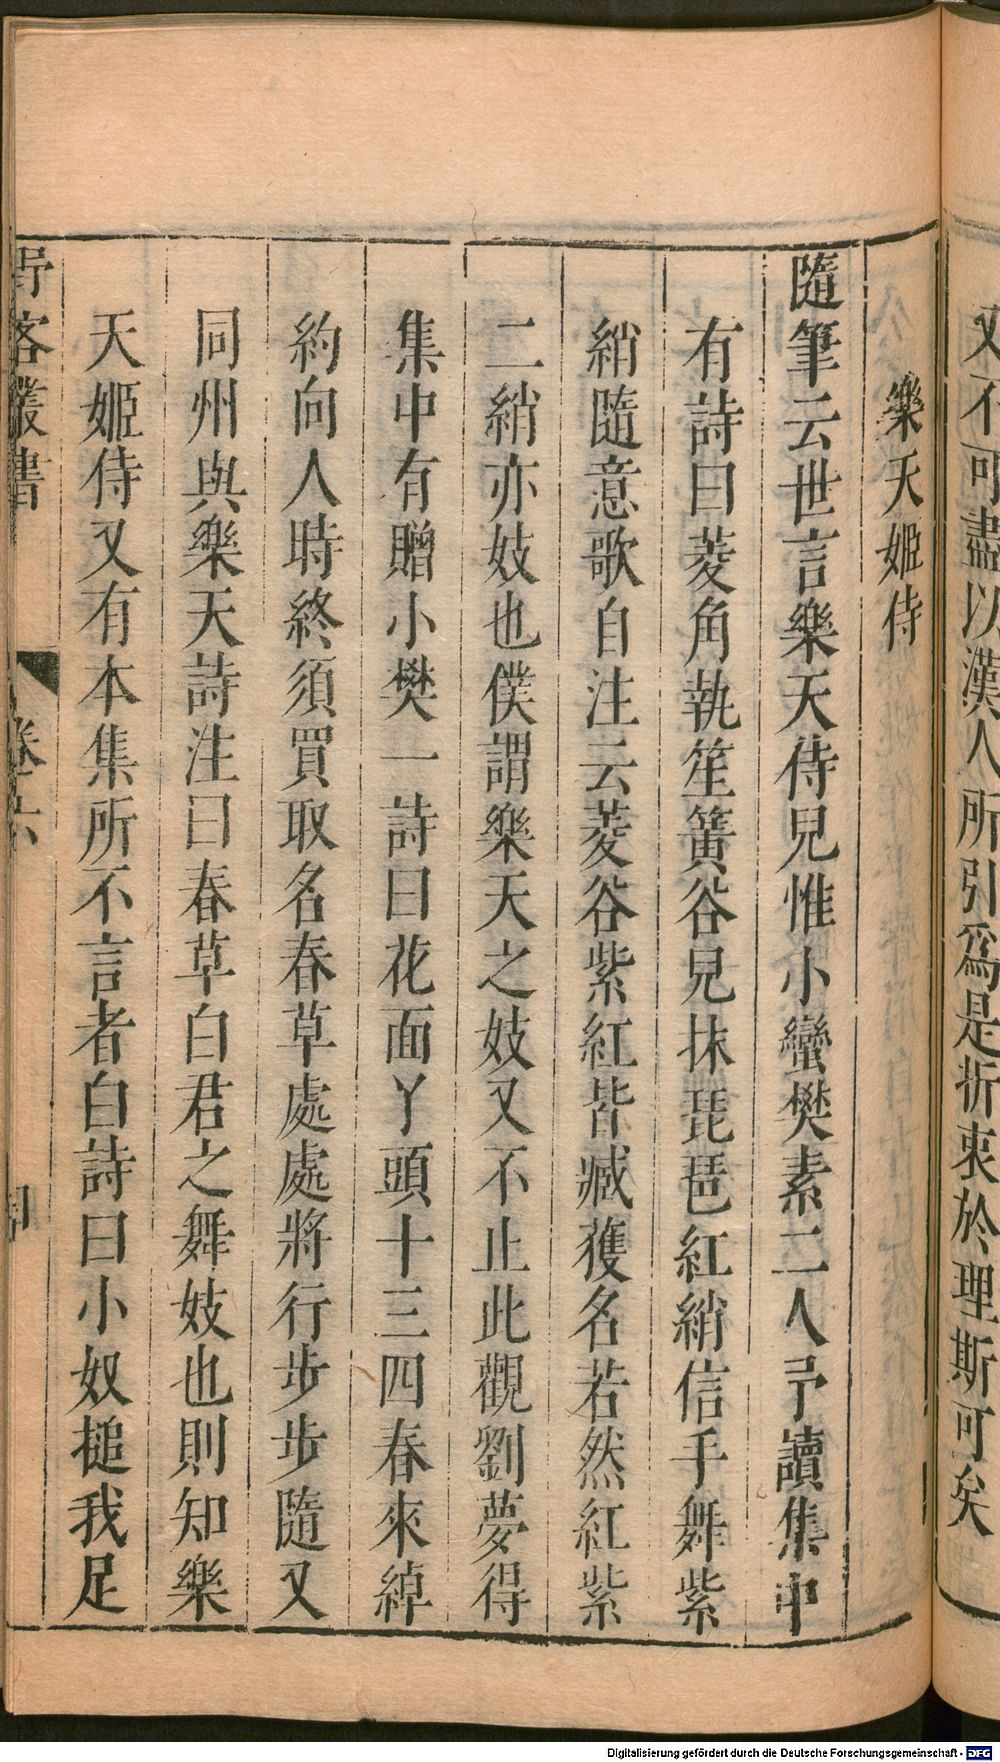 又不可盡以漢人所引爲是折衷於理斯可矣
樂天姬侍
隨筆云世言樂天侍兒惟小蠻樊素二人予讀集中
有詩曰菱角執笙簧谷兒抹琵琶紅綃信手舞紫
綃隨意歌自注云菱谷紫紅皆臧獲名若然紅紫
二綃亦妓也僕謂樂天之妓又不止此觀劉夢得
集中有贈小樊一詩曰花面丫頭十三四春來綽
約向人時終須買取名春草處處將行步步隨又
同州與樂天詩注曰春草白君之舞妓也則知樂
天姬侍又有本集所不言者白詩曰小奴搥我足
野客叢書
卷六
Digitalisierung gefördert durch die Deutsche Forschungsgemeinschaft - DFG